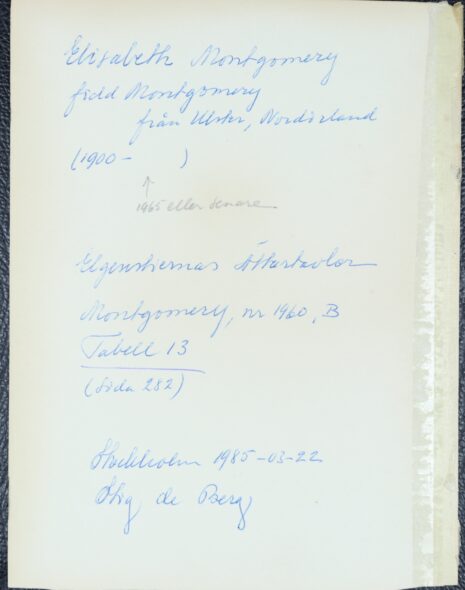 Elisabeth Montgomery
född Montgomery
från Ulster, Nordirland
(1900-      )
↑
1965 eller senare
Elgenstiernas Ättartavlor
Montgomery, nr 1960, B
Tabell 13
(Sida 282)
Stockholm 1985-03-22
Stig de Berg